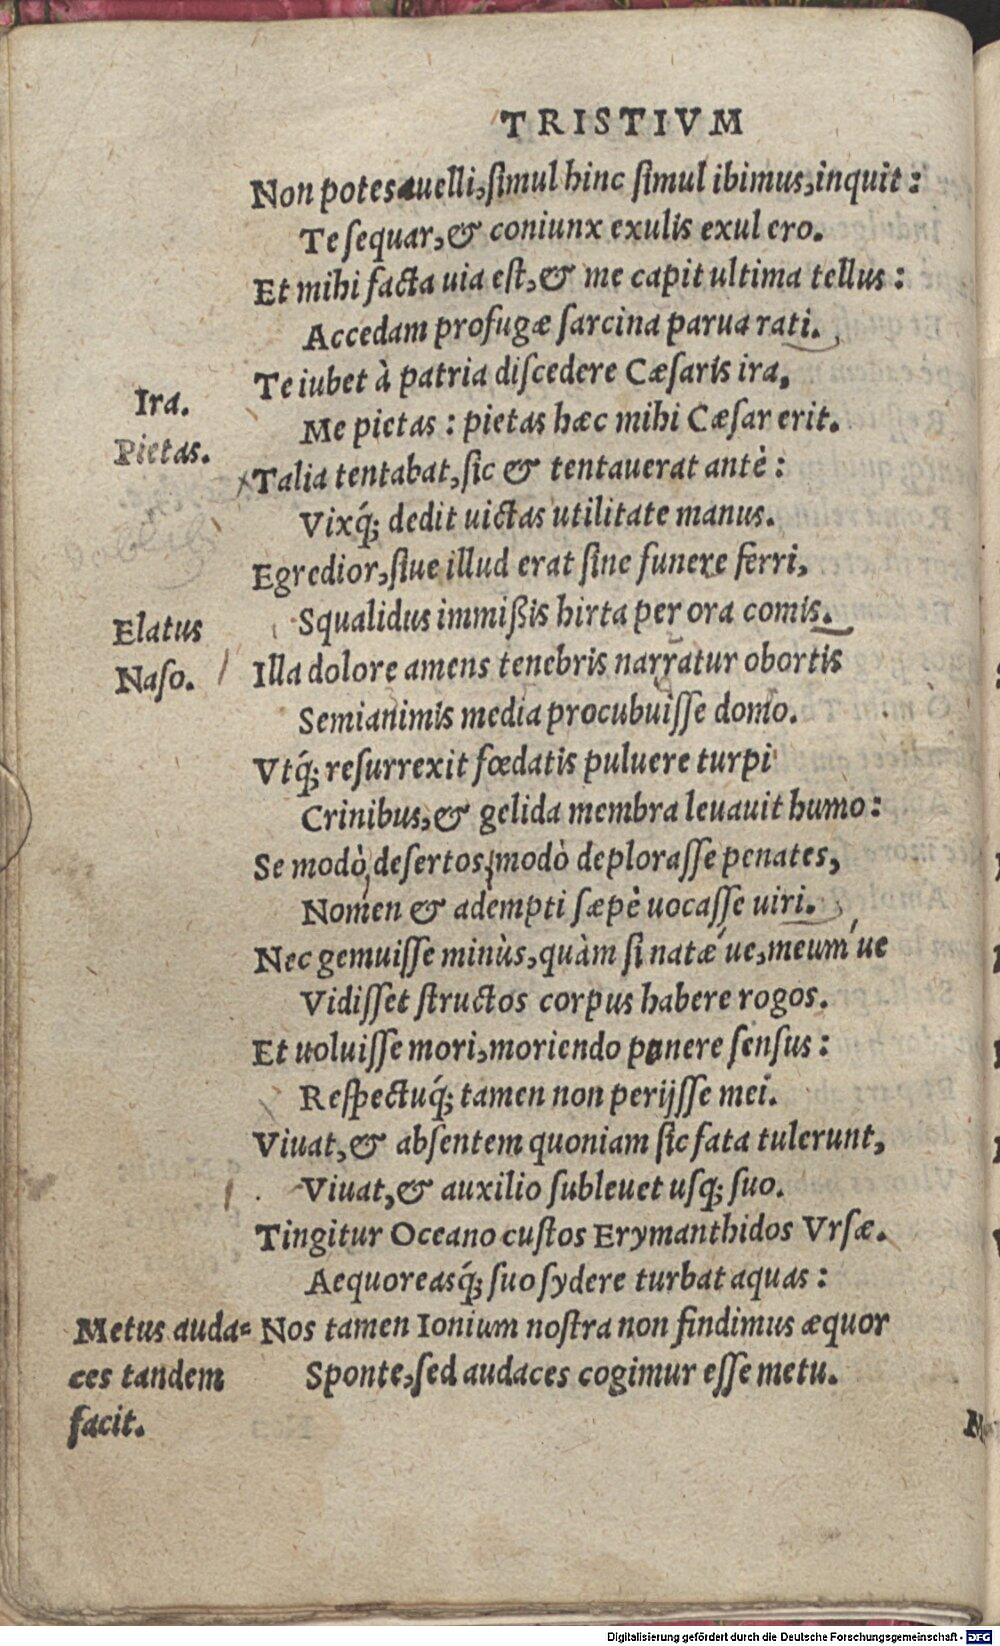 TRISTIVM
Non potes auelli, simul hinc simul ibimus, inquit:
Te sequar, & coniunx exulis exul ero.
Et mihi facta uia est, & me capit ultima tellus:
Accedam profugæ sarcina parua rati.
Te iubet à patria discedere Cæsaris ira,
Ira.
Me pietas: pietas hæc mihi Cæsar erit.
Pietas.
Talia tentabat, sic & tentauerat antè:
Vixq́; dedit uictas utilitate manus.
Egredior, siue illud erat sine funere ferri,
Squalidus immißis hirta per ora comis.
Elatus
Naso.
Illa dolore amens tenebris narratur obortis
Semianimis media procubuisse domo.
Vtq́; resurrexit fœdatis puluere turpi
Crinibus, & gelida membra leuauit humo:
Se modò, desertos, modò deplorasse penates,
Nomen & adempti sæpè uocasse uiri.
Nec gemuisse minùs, quàm si natæ'ue, meum'ue
Vidisset structos corpus habere rogos.
Et uoluisse mori, moriendo ponere sensus:
Respectuq́; tamen non perijsse mei.
Viuat, & absentem quoniam sic fata tulerunt,
Viuat, & auxilio subleuet usq; suo.
Tingitur Oceano custos Erymanthidos Vrsæ.
Aequoreasq́; suo sydere turbat aquas:
Metus auda=
ces tandem
facit.
Nos tamen Ionium nostra non findimus æquor
Sponte, sed audaces cogimur esse metu.
Digitalisierung gefördert durch die Deutsche Forschungsgemeinschaft - DFG